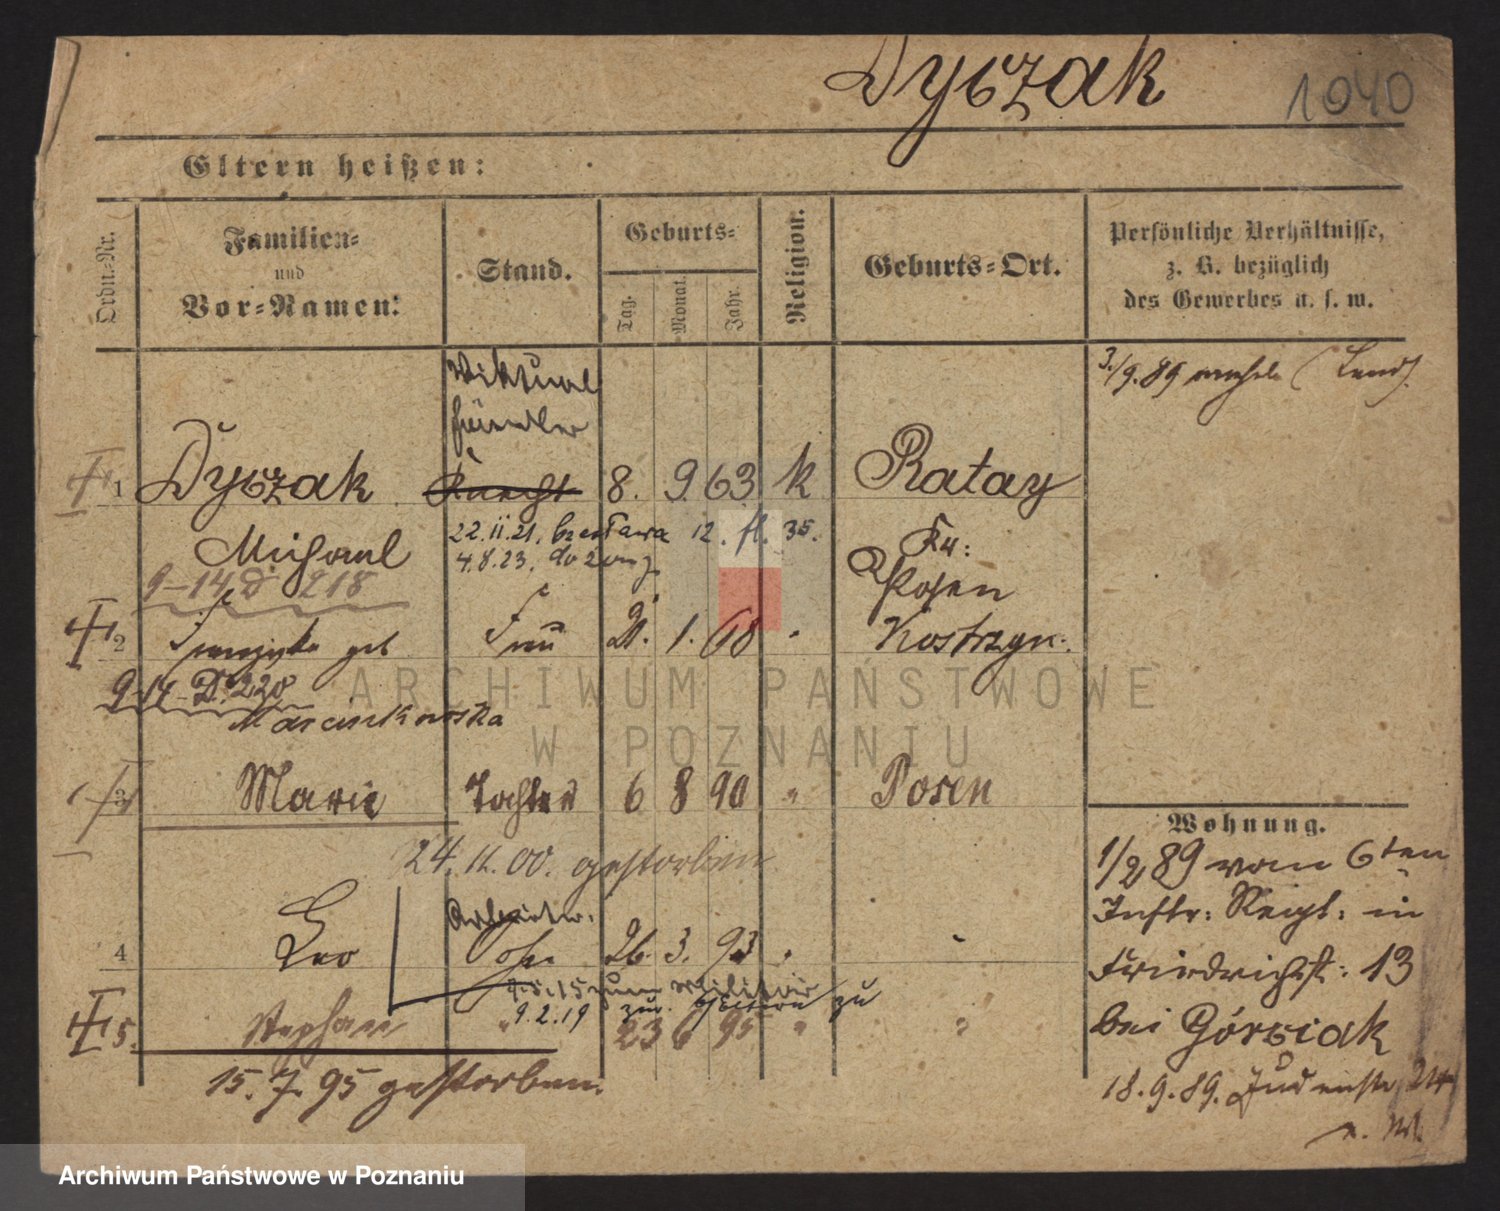 Dyszak 1040
Eltern heißen:
Ordn.-Nr.
Familien-
und
Vor-Namen:
Stand.
Geburts-
Tag.
Monat.
Jahr.
Religion.
Geburts-Ort.
Persönliche Verhältnisse,
z. B. bezüglich
des Gewerbes u. s. w.
3./9. 89
Viktual
händler
1 Dyszak Knecht 8. 9. 63 k Ratay
22. 11. 21. 12. 35.
4. 8. 23.
Michael Kr:
Posen
9-14 D 218
2 geb Frau 21. 1. 68 " Kostrzyn.
9-14 D. 220
Marcinkowska
ARCHIWUM PAŃSTWOWE
W POZNANIU
3 Marie Tochter 6 8 90 " Posen
24. 11. 00. gestorben
Arbeiter.
4 Leo Sohn 26. 3. 93 " "
4. 5. 15 zum Militär
9. 2. 19 zur. zu
5. Stephan " 23 6 95 " "
15. 7. 95 gestorben.
Wohnung.
1/2 89 vom 6ten
Inftr: Reigt: in
Friedrichstr: 13
bei Górziak
18. 9. 89. Judenstr
Archiwum Państwowe w Poznaniu